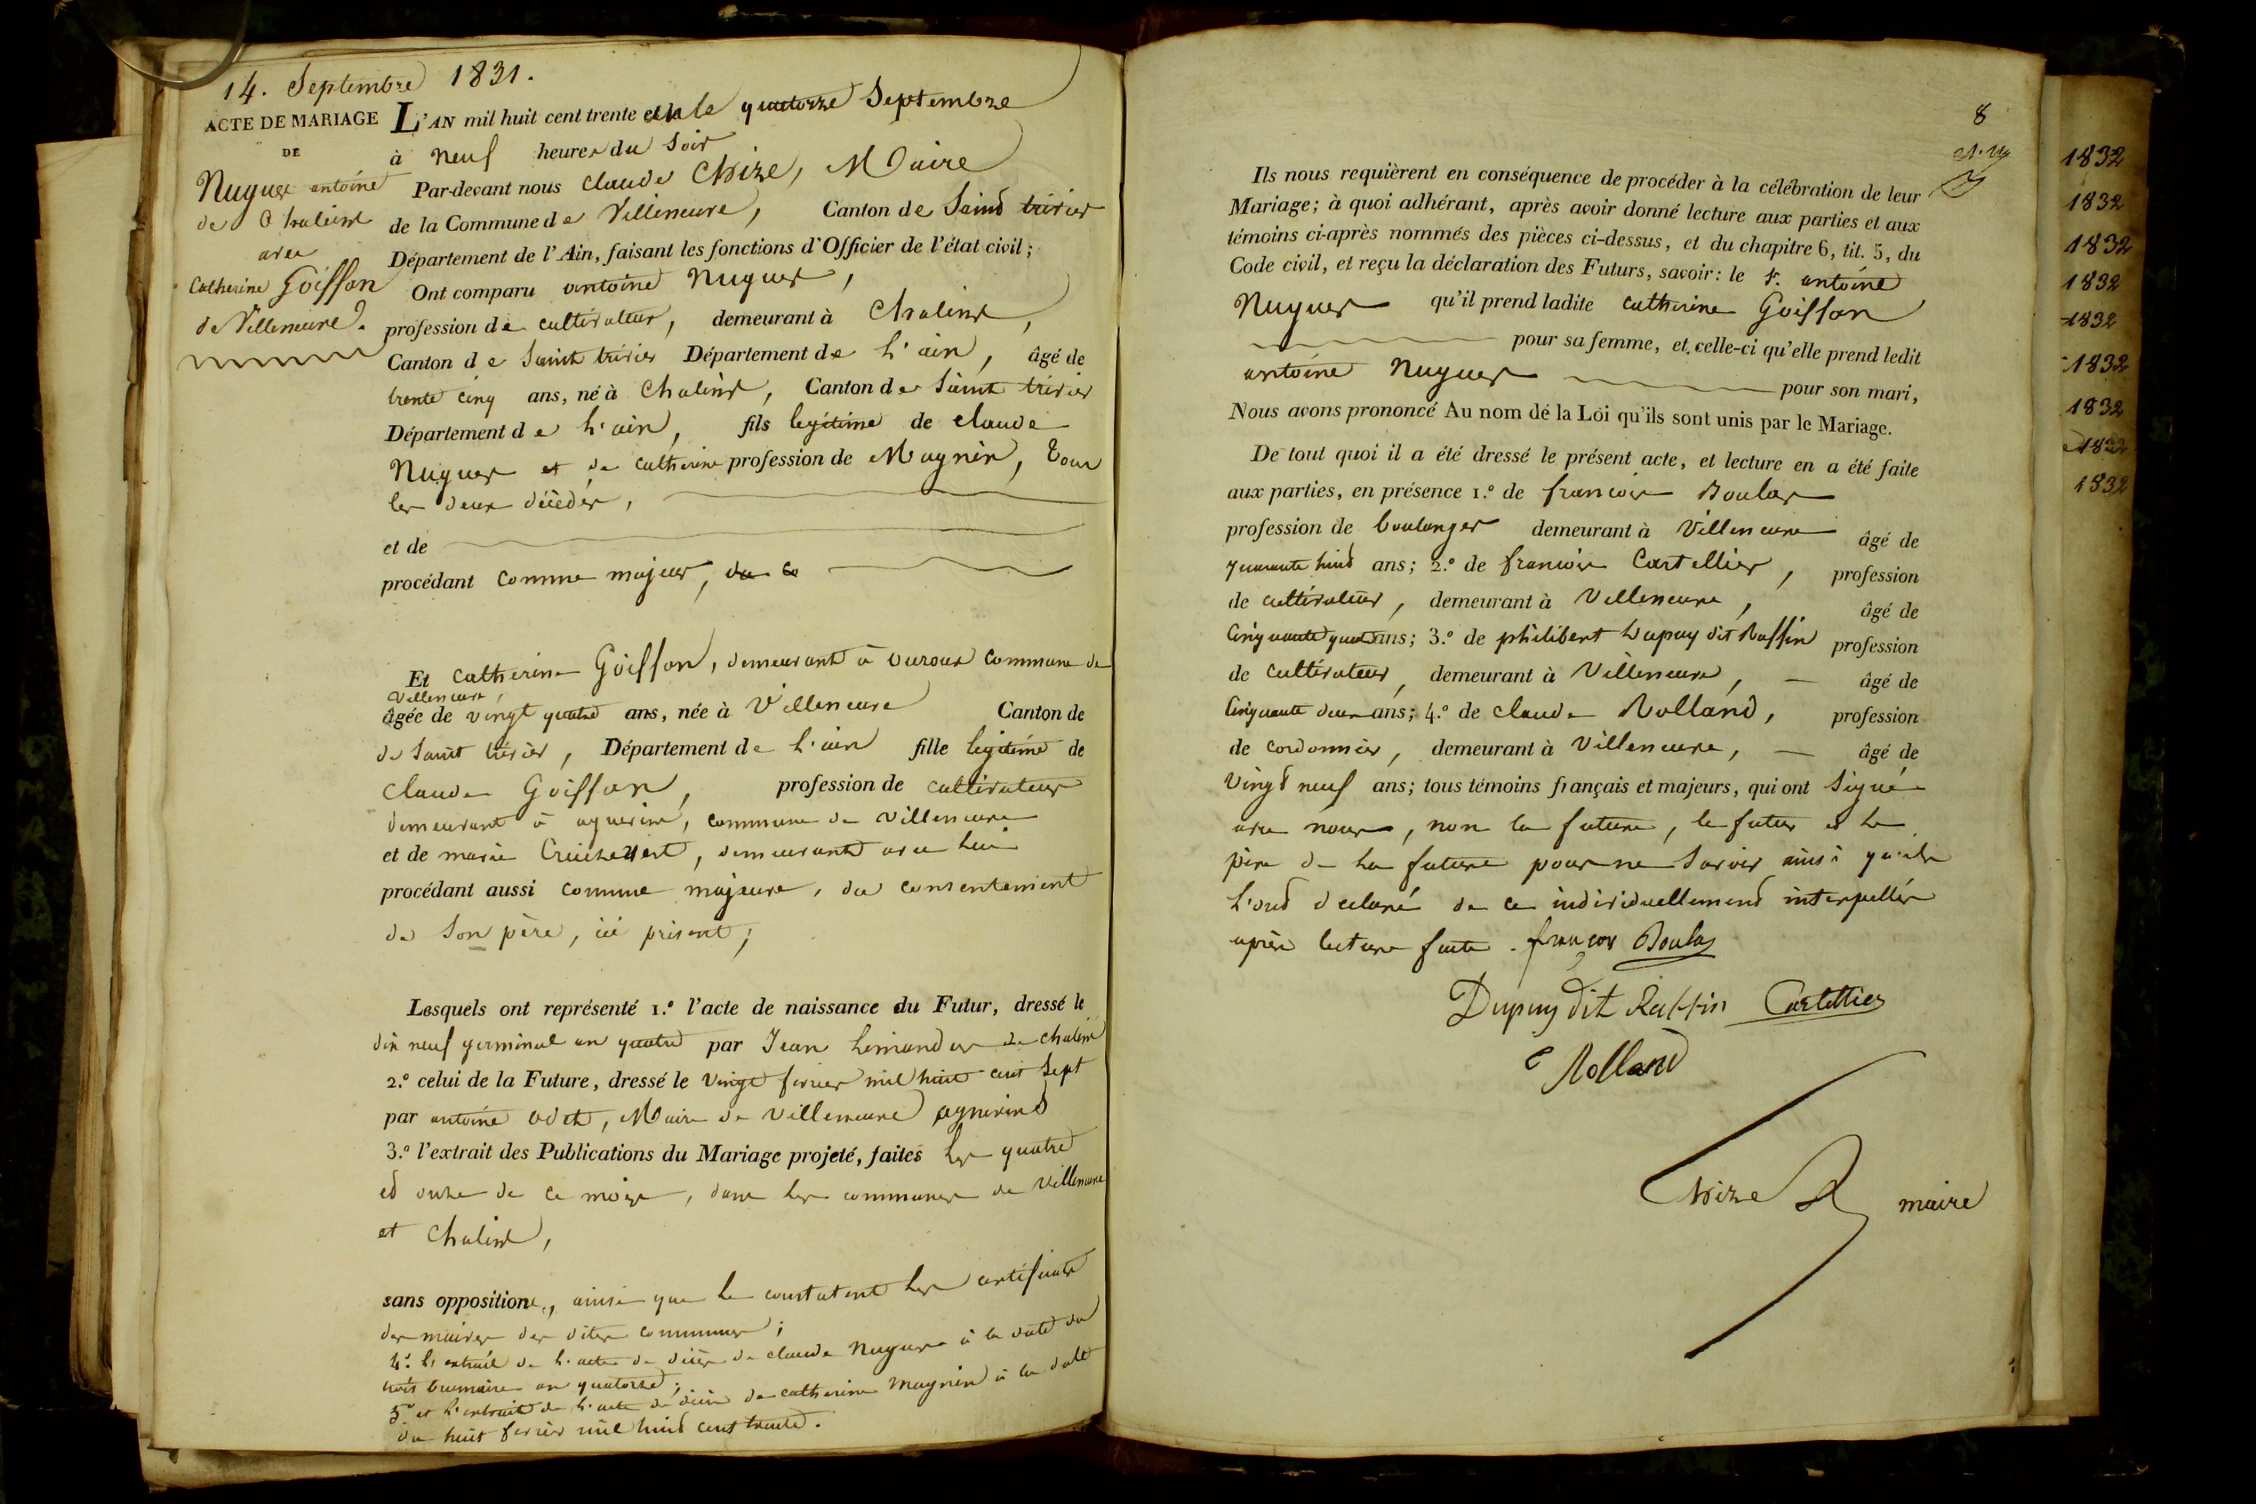 14. Septembre 1831.
ACTE DE MARIAGE
DE
Nugues antoine
de Chaleins
avec
Catherine Goiffon
de Villeneuve.
L'AN mil huit cent trente et un le quatorze Septembre
à neuf heures du Soir
Par-devant nous Claude Chize, Maire
de la Commune de Villeneuve, Canton de Saint trivier
Département de l'Ain, faisant les fonctions d'Officier de l'état civil;
Ont comparu antoine Nugues,
profession de cultivateur, demeurant à Chaleins,
Canton de Saint trivier Département de l'ain, âgé de
trente cinq ans, né à Chaleins, Canton de Saint trivier
Département de l'ain, fils legitime de claude
Nugues et de catherine profession de Magnin, Tous
les deux décédés,
et de
procédant comme majeur, du co
Et Catherine Goiffon, demeurant à ouroux commune de
Villeneuve,
âgée de vingt quatre ans, née à Villeneuve Canton de
de Saint trivier, Département de l'ain fille legitime de
Claude Goiffon, profession de cultivateur
demeurant à agnerins, commune de villeneuve
et de marie Cruchevert, demeurant avec lui
procédant aussi comme majeure, du consentement
de Son père, ici présent;
Lesquels ont représenté 1.º l'acte de naissance du Futur, dressé le
dix neuf germinal an quatre par Jean de chaleins
2.º celui de la Future, dressé le vingt fevrier mil huit cent Sept
par antoine odet, Maire de villeneuve agnerins
3.º l'extrait des Publications du Mariage projeté, faites les quatre
et onze de ce mois, dans les communes de Villeneuve
et Chaleins,
sans oppositions, ainsi que le constatent les certificats
des maires des dites communes;
4º. l'extrait de l'acte de décès de claude Nugues à la date du
trois brumaire an quatorze;
5º et l'extrait de l'acte de décès de catherine magnin à la date
du huit fevrier mil huit cent trente.
8
Ils nous requièrent en conséquence de procéder à la célébration de leur
Mariage; à quoi adhérant, après avoir donné lecture aux parties et aux
témoins ci-après nommés des pièces ci-dessus, et du chapitre 6, tit. 5, du
Code civil, et reçu la déclaration des Futurs, savoir: le S. antoine
Nugues qu'il prend ladite catherine Goiffon
pour sa femme, et celle-ci qu'elle prend ledit
antoine Nugues pour son mari,
Nous avons prononcé Au nom de la Loi qu'ils sont unis par le Mariage.
De tout quoi il a été dressé le présent acte, et lecture en a été faite
aux parties, en présence 1.º de francois Boulas
profession de boulanger demeurant à Villeneuve âgé de
quarante huit ans; 2.º de francois Cartellier, profession
de cultivateur, demeurant à Villeneuve, âgé de
Cinquante quatre ans; 3.º de philibert Dupuy dit Raffin profession
de cultivateur, demeurant à Villeneuve, âgé de
Cinquante deux ans; 4.º de claude Rolland, profession
de cordonnier, demeurant à Villeneuve, âgé de
Vingt neuf ans; tous témoins français et majeurs, qui ont Signé
avec nous, non la future, le futur et le
père de la future pour ne savoir ainsi qu'ils
l'ont declaré de ce individuellement interpellés
après lecture faite. françois Boulas
Dupuy dit Raffin Cartellier
C Rolland
Chize maire
1832
1832
1832
1832
1832
1832
1832
1832
1832